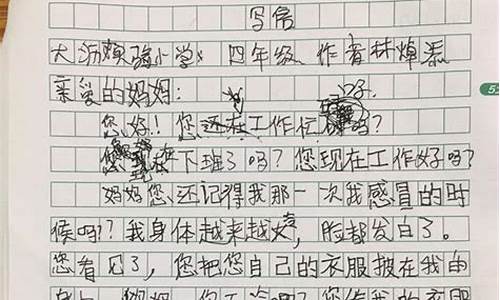 写信
大沥实验小学 四年级 作者林焯
亲爱的妈妈:
您好!您还在工作忙吗?
您现在下班了吗?您现在工作好吗?
妈妈您还记得我那一次我感冒的时
候吗?我身体越来越,脸都发白了。
您看见了,您把您自己的衣服披在我的
身上 妈妈 您 吗?您给我的衣服